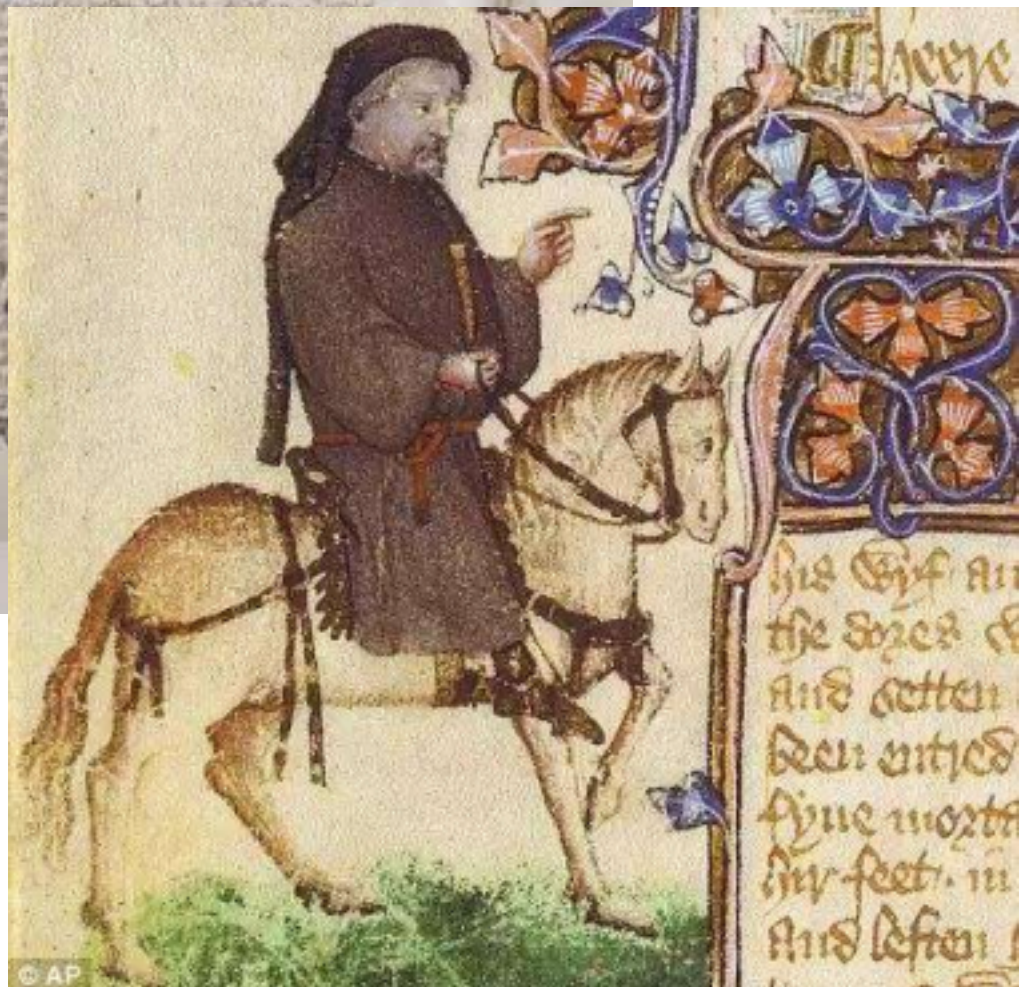 Heere
his wyf an
the dores w
and setten
been entred
fyue morta
hir feet · in
and leften
© AP